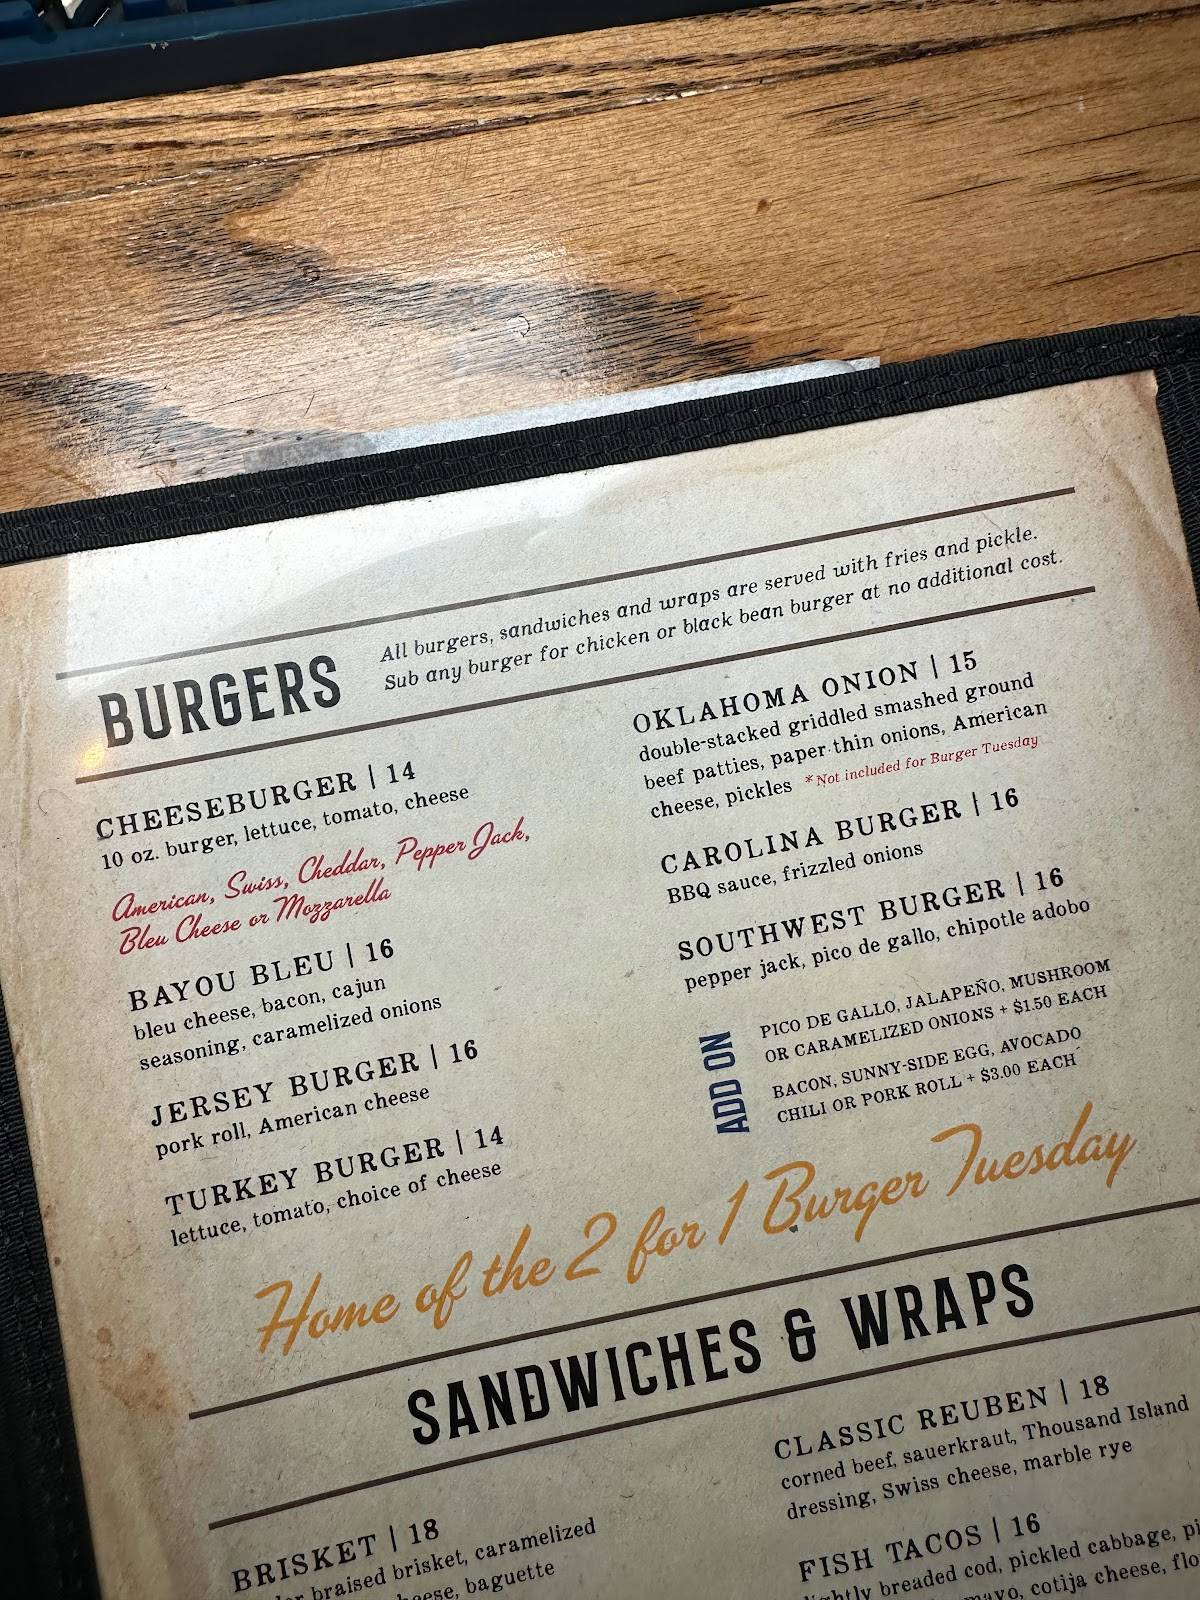 BURGERS
All burgers, sandwiches and wraps are served with fries and pickle.
Sub any burger for chicken or black bean burger at no additional cost.
CHEESEBURGER | 14
10 oz. burger, lettuce, tomato, cheese
American, Swiss, Cheddar, Pepper Jack,
Bleu Cheese or Mozzarella
BAYOU BLEU | 16
bleu cheese, bacon, cajun
seasoning, caramelized onions
JERSEY BURGER | 16
pork roll, American cheese
TURKEY BURGER | 14
lettuce, tomato, choice of cheese
OKLAHOMA ONION | 15
double-stacked griddled smashed ground
beef patties, paper thin onions, American
cheese, pickles *Not included for Burger Tuesday
CAROLINA BURGER | 16
BBQ sauce, frizzled onions
SOUTHWEST BURGER | 16
pepper jack, pico de gallo, chipotle adobo
ADD ON
PICO DE GALLO, JALAPEÑO, MUSHROOM
OR CARAMELIZED ONIONS + $1.50 EACH
BACON, SUNNY-SIDE EGG, AVOCADO
CHILI OR PORK ROLL + $3.00 EACH
Home of the 2 for 1 Burger Tuesday
SANDWICHES & WRAPS
BRISKET | 18
braised brisket, caramelized
baguette
CLASSIC REUBEN | 18
corned beef, sauerkraut, Thousand Island
dressing, Swiss cheese, marble rye
FISH TACOS | 16
breaded cod, pickled cabbage,
mayo, cotija cheese,